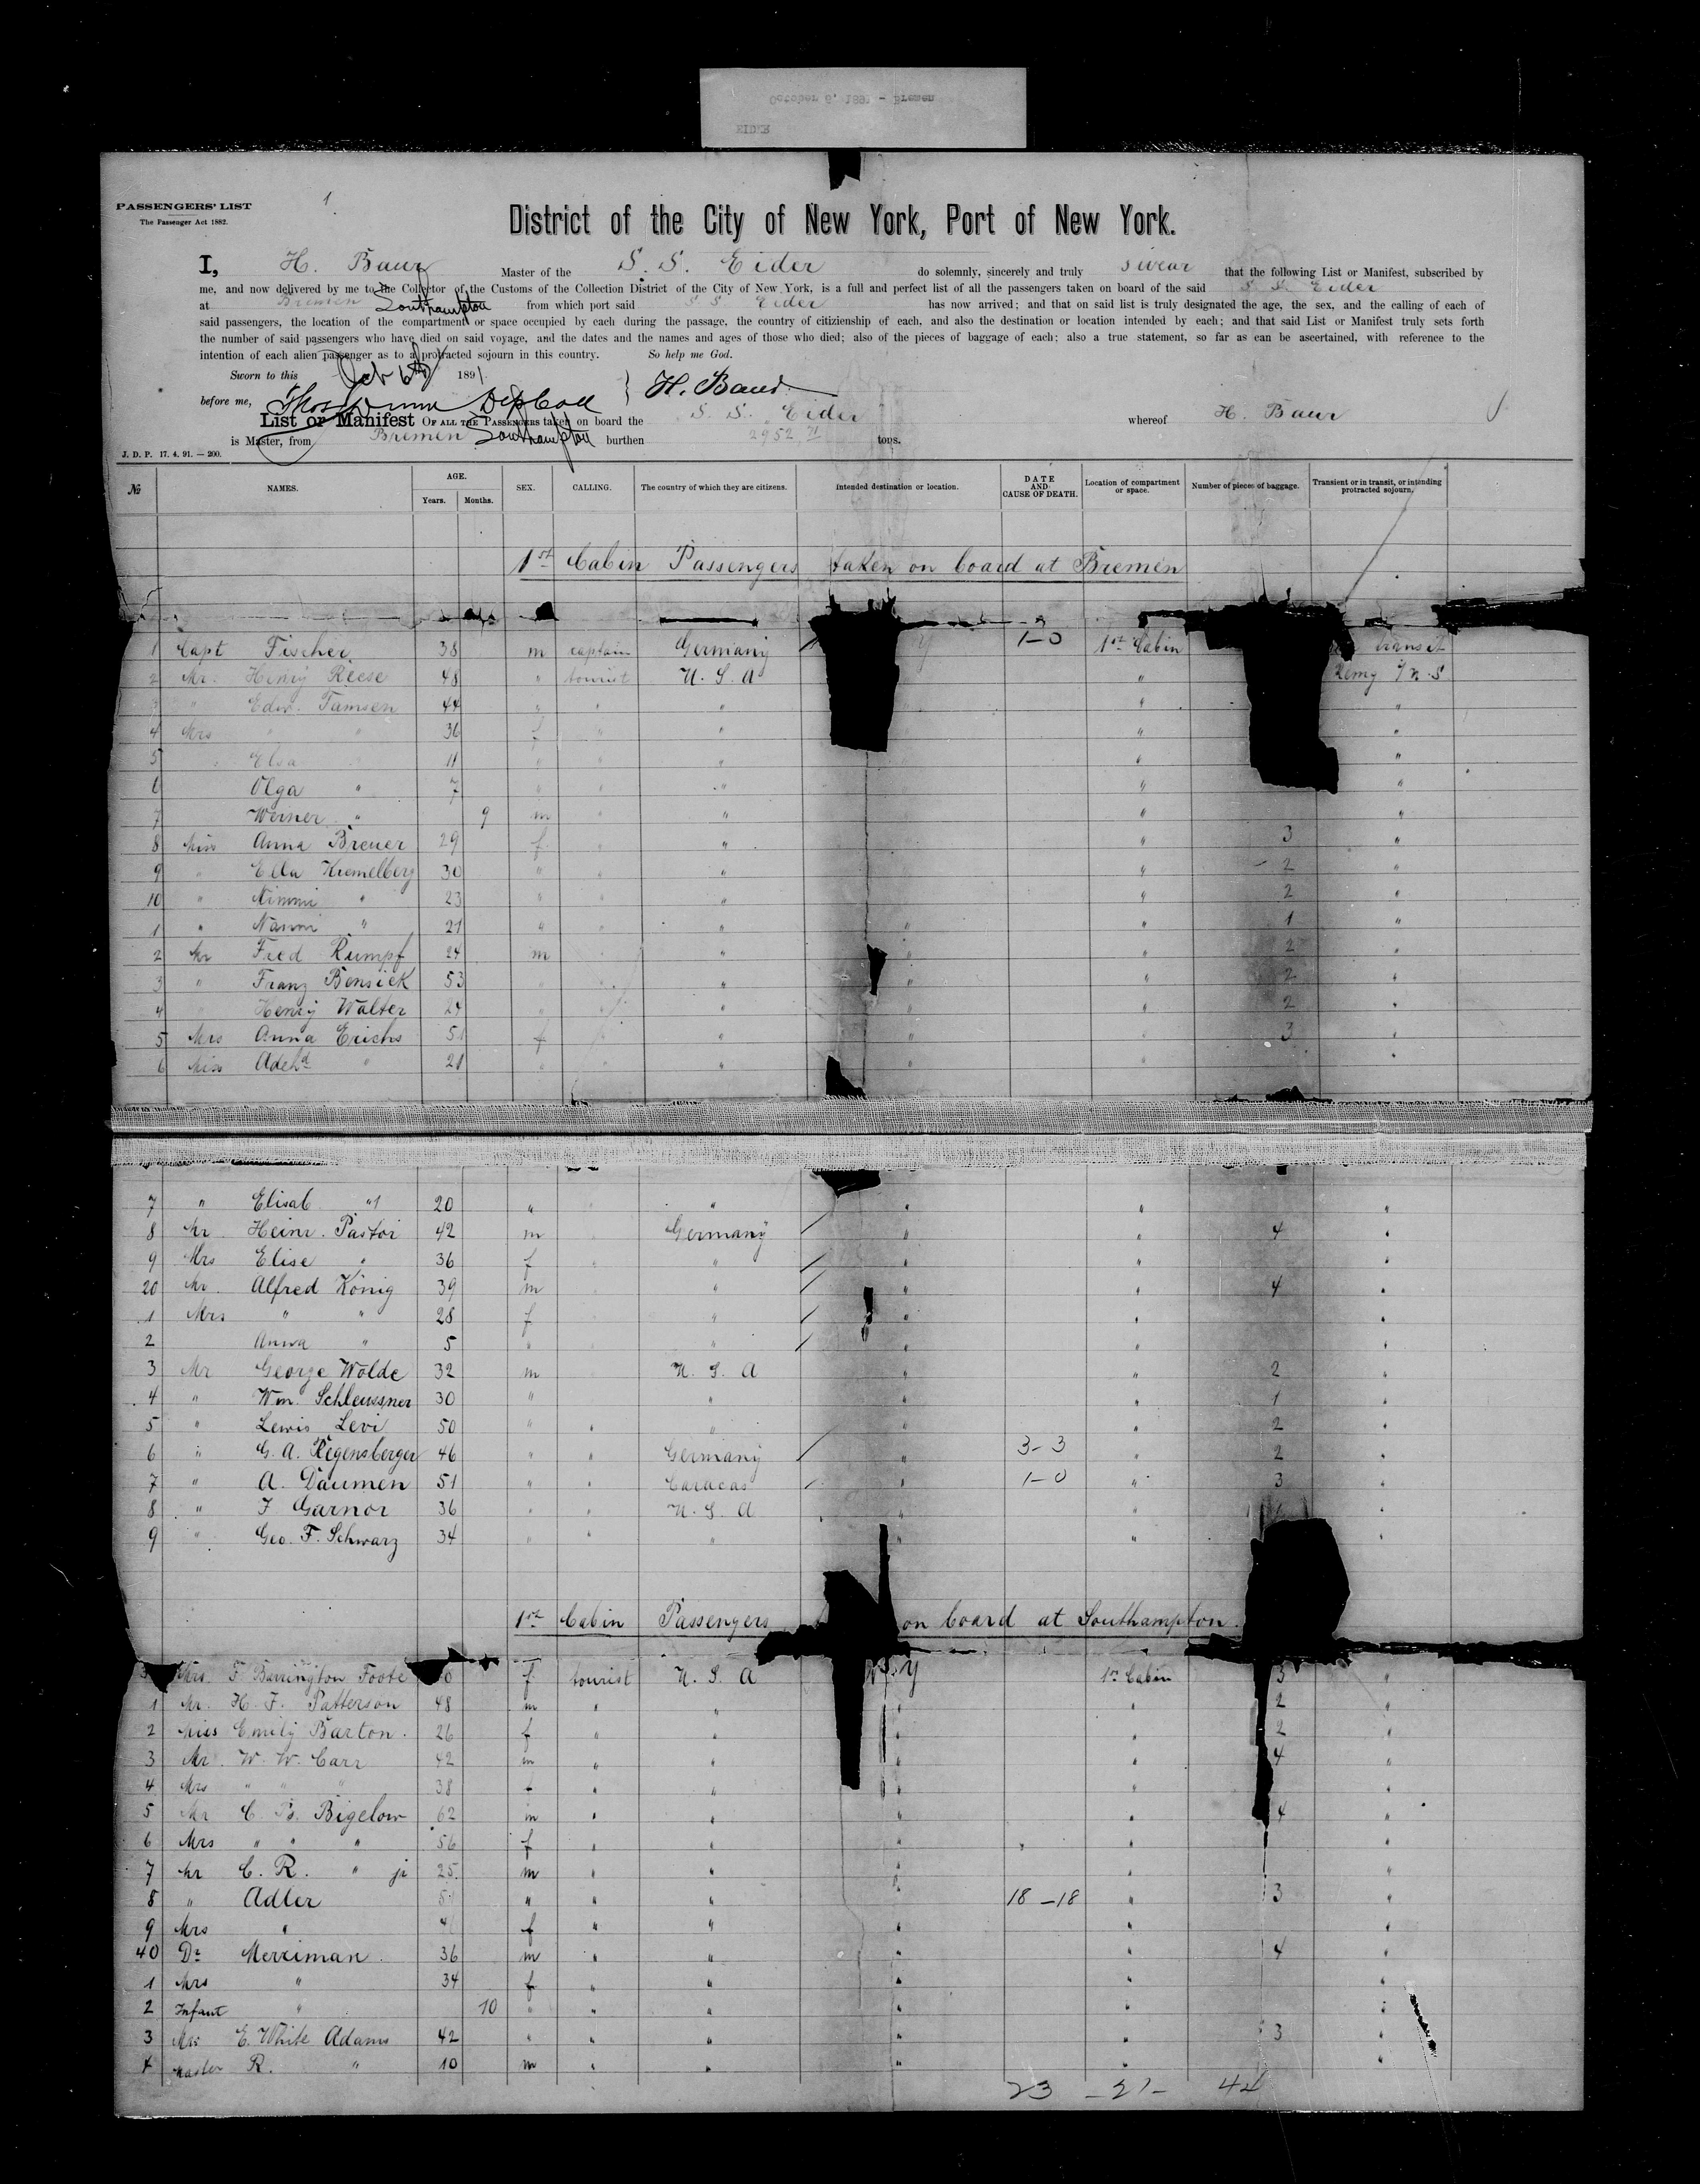 October 6, 1891 - Bremen
EIDER
PASSENGERS' LIST
The Passenger Act 1882.
1
District of the City of New York, Port of New York.
I, H. Baur Master of the S. S. Eider do solemnly, sincerely and truly swear that the following List or Manifest, subscribed by
me, and now delivered by me to the Collector of the Customs of the Collection District of the City of New York, is a full and perfect list of all the passengers taken on board of the said S. S. Eider
at Bremen Southampton from which port said S S Eider has now arrived; and that on said list is truly designated the age, the sex, and the calling of each of
said passengers, the location of the compartment or space occupied by each during the passage, the country of citizienship of each, and also the destination or location intended by each; and that said List or Manifest truly sets forth
the number of said passengers who have died on said voyage, and the dates and the names and ages of those who died; also of the pieces of baggage of each; also a true statement, so far as can be ascertained, with reference to the
intention of each alien passenger as to a protracted sojourn in this country. So help me God.
Sworn to this Oct 6th 1891
before me, Dep Coll } H. Baur
List or Manifest OF ALL THE PASSENGERS taken on board the S. S. Eider whereof H. Baur
is Master, from Bremen Southampton burthen 2952 tons.
J. D. P. 17. 4. 91. — 200.
№ NAMES. AGE. Years. Months. SEX. CALLING. The country of which they are citizens. Intended destination or location. DATE AND CAUSE OF DEATH. Location of compartment or space. Number of pieces of baggage. Transient or in transit, or intending protracted sojourn.
1st Cabin Passengers taken on board at Bremen
1 Capt Fischer 38 m captain Germany Y 1-0 1st Cabin transit
2 Mr. Henry Reese 48 " tourist U. S. A "
3 " Edw. Tamsen 44 " " " " "
4 Mrs " " 36 f " " " "
5 Elsa " 11 " " " " "
6 Olga " 7 " " " " "
7 Werner " 9 m " " " "
8 Miss Anna Breuer 29 f " " " 3 "
9 " Ella Kremelberg 30 " " " " 2 "
10 " Mimmi " 23 " " " " 2 "
1 " Nanni " 21 " " " " " 1 "
2 Mr Fred Rumpf 24 m " " " " 2 "
3 " Franz Bensick 53 " " " " " 2 "
4 " Henry Walter 24 " " " " " 2 "
5 Mrs Anna Erichs 51 f " " " " 3 "
6 Miss Adehd " 21 " " " " " "
7 " Elisab " 20 " " " " " "
8 Mr Heinr. Pastor 42 m " Germany " " 4 "
9 Mrs Elise " 36 f " " " " "
20 Mr. Alfred König 39 m " " " " 4 "
1 Mrs " " 28 f " " " " "
2 Anna " 5 " " " " " "
3 Mr George Wolde 32 m U. S. A " " 2 "
4 " Wm. Schleussner 30 " " " " 1 "
5 " Lewis Levi 50 " " " " " 2 "
6 " G. A. Regensberger 46 " " Germany " 3-3 " 2 "
7 " A. Daumen 51 " " Caracas " 1-0 " 3 "
8 " F Garnor 36 " " U. S. A " " "
9 " Geo. F. Schwarz 34 " " " " " "
1st Cabin Passengers on board at Southampton.
Mrs. F Barrington Foote f tourist U. S. A N. Y 1st Cabin 3 "
1 Mr. H. F. Patterson 48 m " " " " 2 "
2 Miss Emily Barton. 26 f " " " " 2 "
3 Mr. W. W. Carr 42 m " " " " 4 "
4 Mrs " " " 38 f " " " " "
5 Mr C. B. Bigelow 62 m " " " " 4 "
6 Mrs " " " 56 f " " " " "
7 Mr C. R. " jr 25 m " " " " "
8 " Adler " " " " 18-18 " 3 "
9 Mrs " f " " " " "
40 Dr Merriman. 36 m " " " " 4 "
1 Mrs " 34 f " " " " "
2 Infant " 10 " " " " " "
3 Mrs E. White Adams 42 " " " " " 3 "
4 Master R. " 10 m " " " " "
23 - 21 - 44